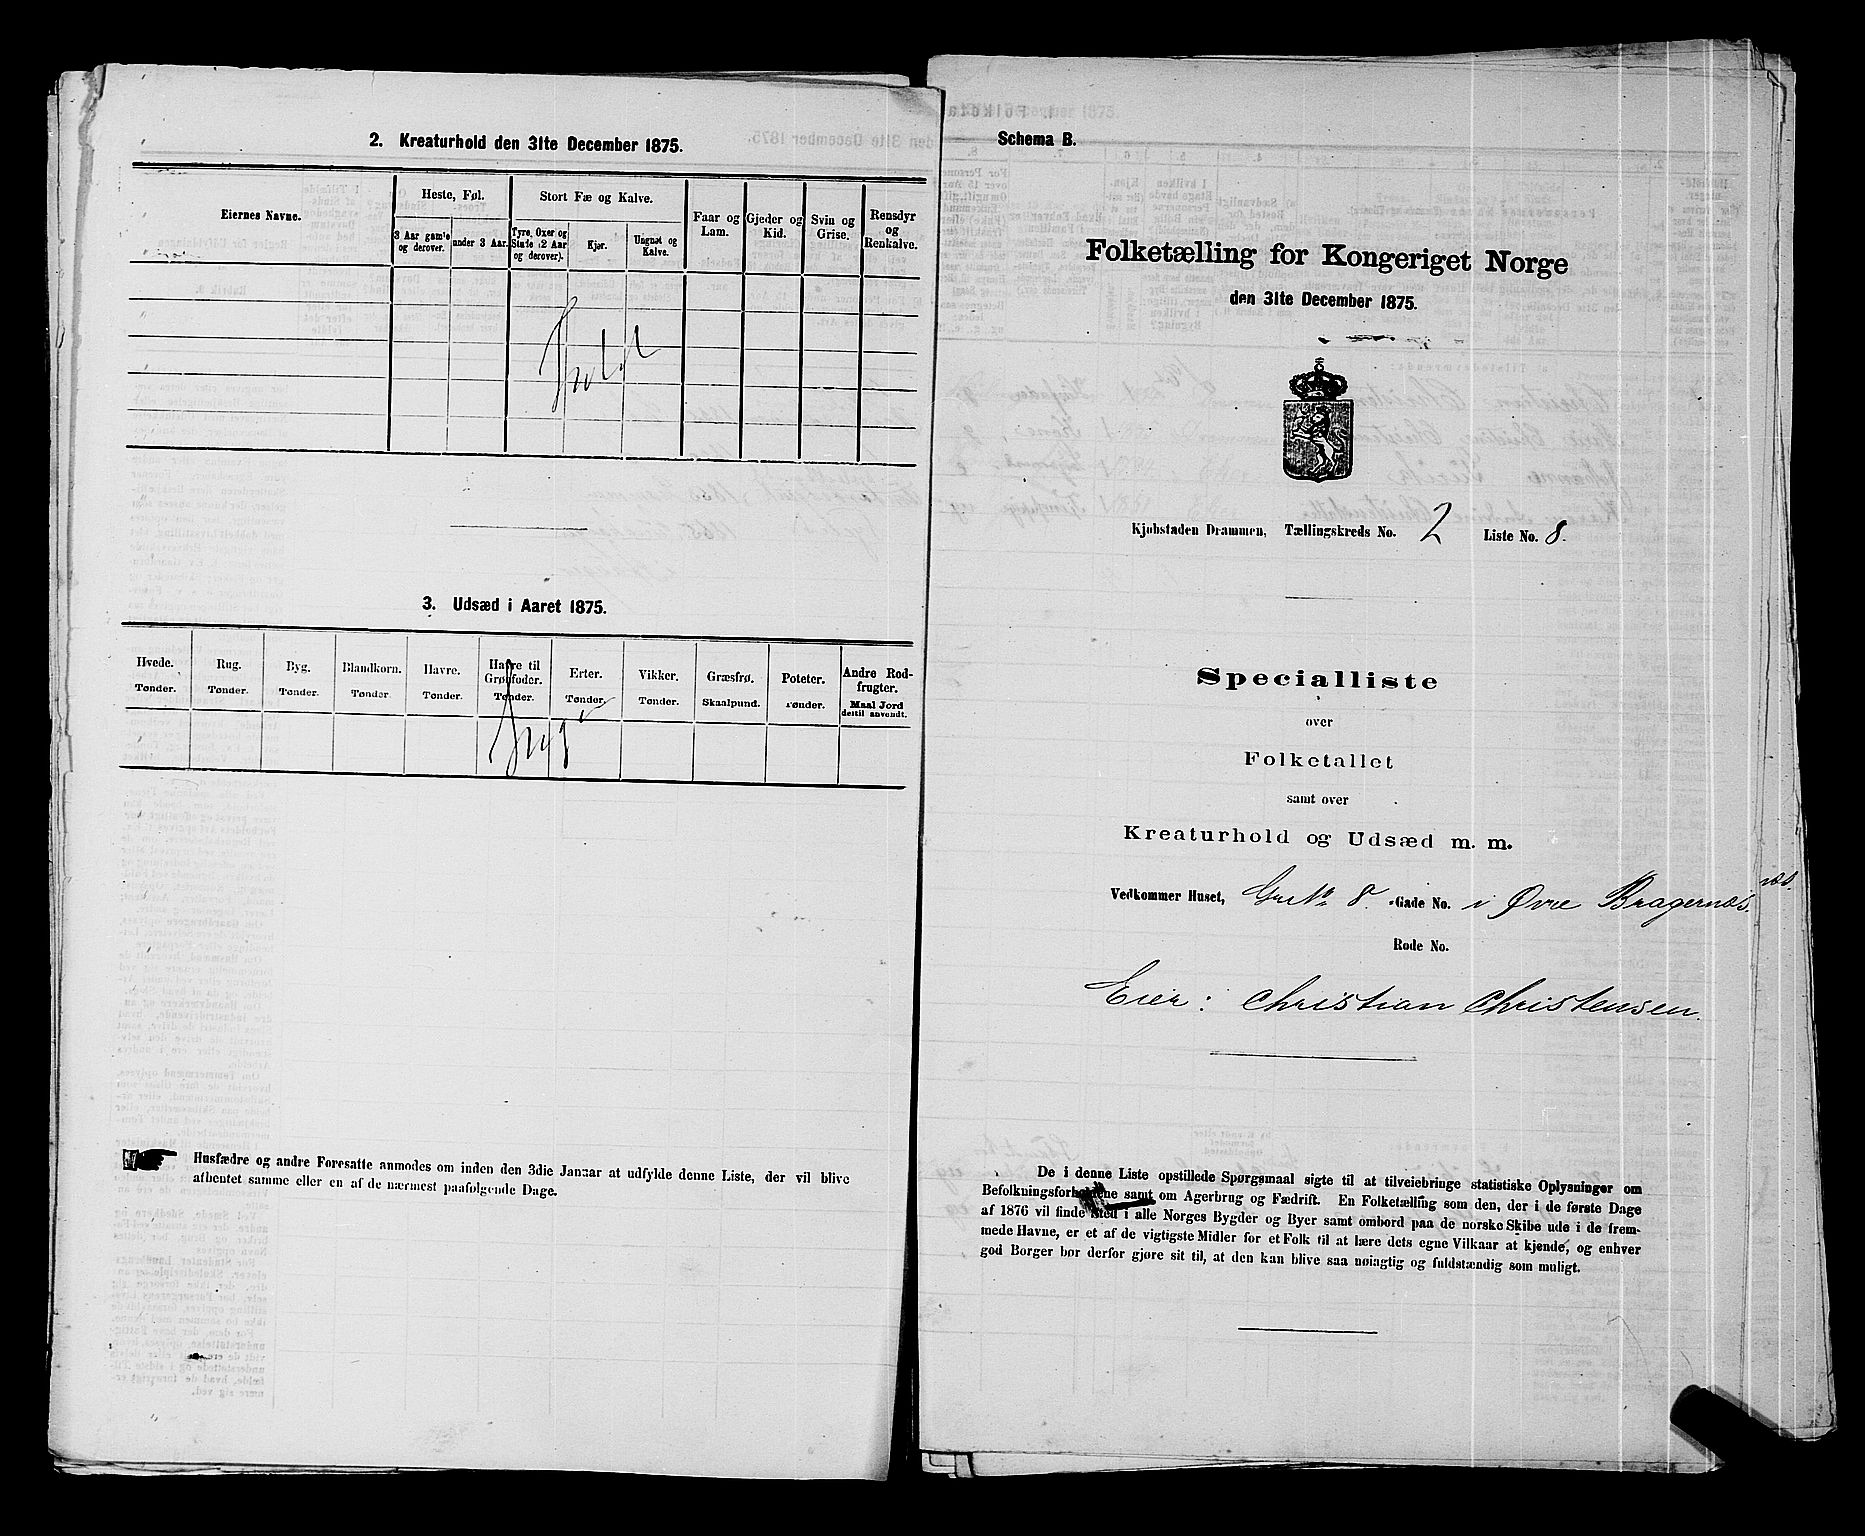 2. Kreaturhold den 31te December 1875.
Eiernes Navne.
Heste, Føl.
Stort Fæ og Kalve.
Faar og Lam.
Gjeder og Kid.
Svin og Grise.
Rensdyr og Renkalve.
3 Aar gamle og derover.
under 3 Aar.
Tyre, Oxer og Stude (2 Aar og derover).
Kjør.
Ungnøt og Kalve.
3. Udsæd i Aaret 1875.
Hvede. Tønder.
Rug. Tønder.
Byg. Tønder.
Blandkorn. Tønder.
Havre. Tønder.
Havre til Grønfoder. Tønder.
Erter. Tønder.
Vikker. Tønder.
Græsfrø. Skaalpund.
Poteter. Tønder.
Andre Rodfrugter. Maal Jord dertil anvendt.
Husfædre og andre Foresatte anmodes om inden den 3die Januar at udfylde denne Liste, der vil blive
afhentet samme eller en af de nærmest paafølgende Dage.
Schema B.
Folketælling for Kongeriget Norge
den 31te December 1875.
Kjøbstaden Drammen, Tællingskreds No. 2 Liste No. 8.
Specialliste
over
Folketallet
samt over
Kreaturhold og Udsæd m. m.
Vedkommer Huset, 8. Gade No. i Øvre Bragernæs.
Rode No.
Eier: Christian Christensen.
De i denne Liste opstillede Spørgsmaal sigte til at tilveiebringe statistiske Oplysninger om
Befolkningsforholdene samt om Agerbrug og Fædrift. En Folketælling som den, der i de første Dage
af 1876 vil finde Sted i alle Norges Bygder og Byer samt ombord paa de norske Skibe ude i de frem-
mede Havne, er et af de vigtigste Midler for et Folk til at lære dets egne Vilkaar at kjende, og enhver
god Borger bør derfor gjøre sit til, at den kan blive saa nøiagtig og fuldstændig som muligt.